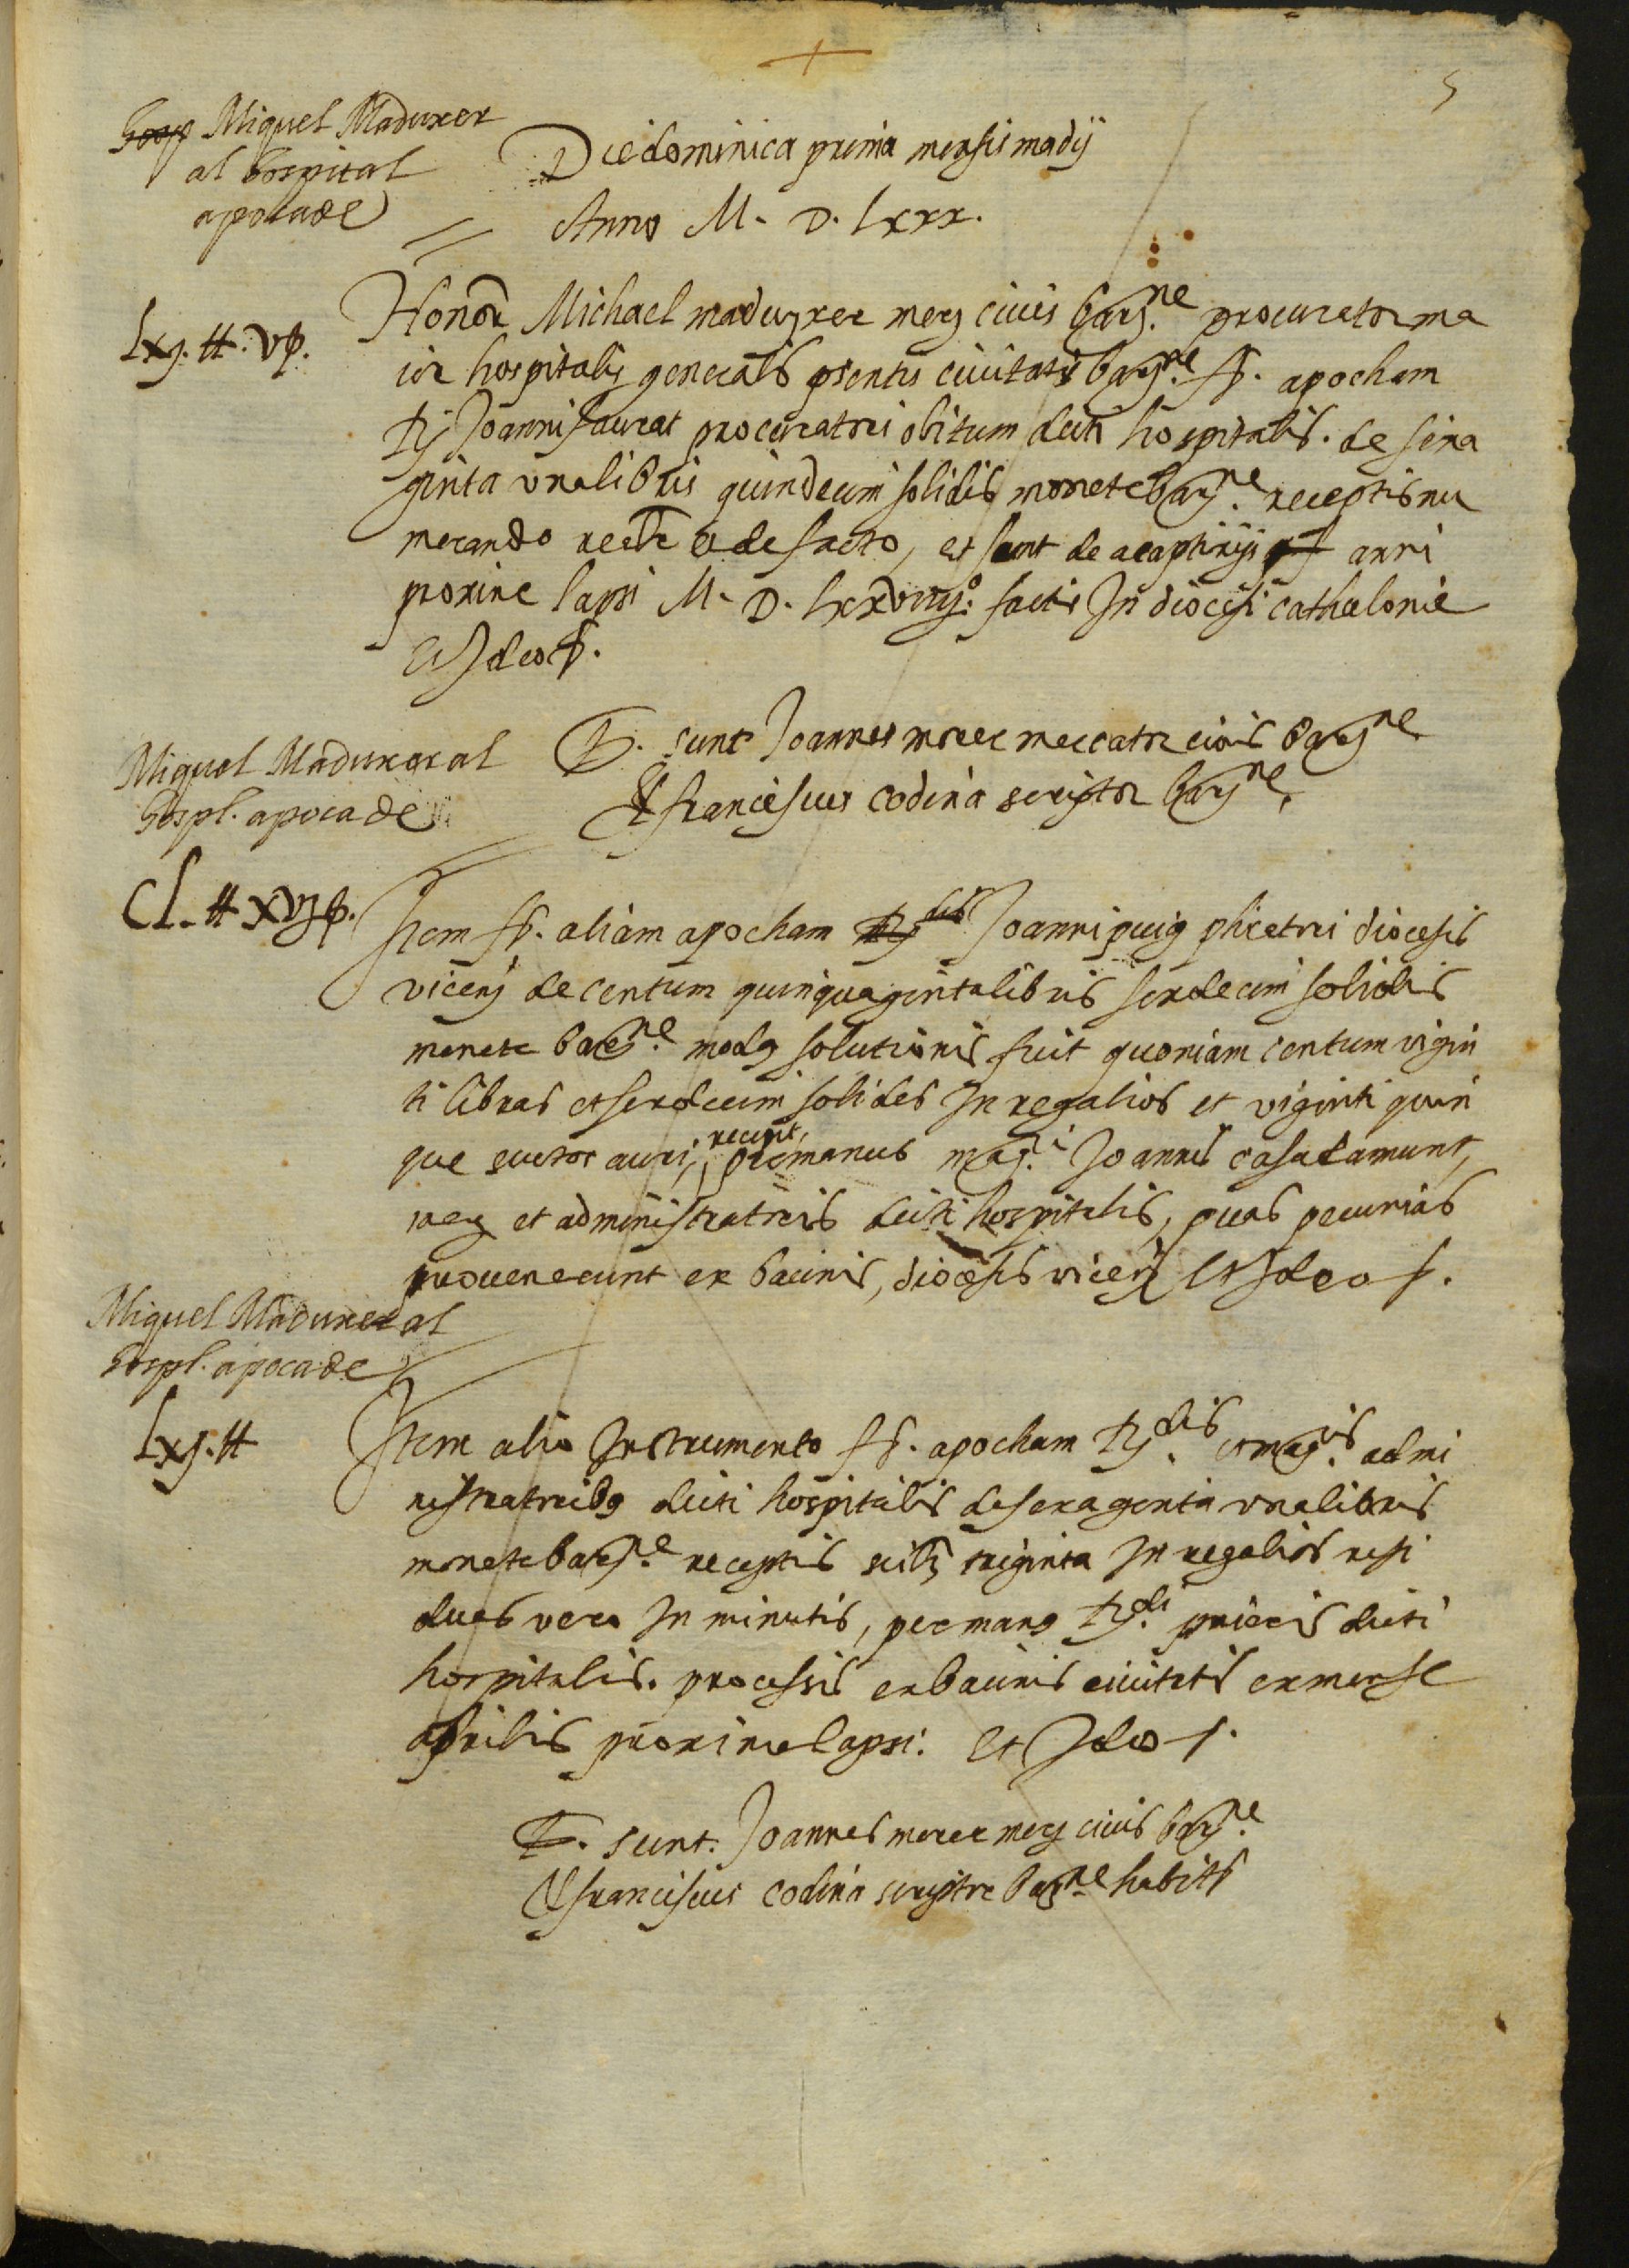 5
Miquel Maduxer
al hospital
apoca de
Die dominica prima mensis madij
Anno M. D. Lxxx.
Lxj. ℔. v β.
Honor Michael maduxer merj civis barj.ne procurator ma
ior hospitalis generalis psentis civitatis barj.ne f. apocham
Rj Joanni saurat procuratori obitum dicti hospitalis. de sexa
ginta una libris quindecim solidis monete barj.ne receptis nu
merando realr et de facto, et sunt de acaptirijs anni
proxime lapsi M. D. Lxxviiij.º factis In diocesi cathalonie
Et Ideo f.
T. sunt Joannes morer mercator civis barj.ne
Et franciscus codina scriptor barj.ne
Miquel Maduxer al
hospl. apoca de
CL. ℔ xvj β.
Item f. aliam apocham Joanni puig pbicatori diocesis
vicenj de centum quinquaginta libris sexdecim solidis
monete barj.ne modq solutionis fuit quoniam centum vigin
ti libras et sexdecim solidos In regalios et viginti quin
que scutos auri, recipit, pre manus mag.ci Joannis casadamunt,
merj et administratoris dicti hospitalis, quas pecunias
provenerunt ex bacinis, diocesis vicenj Et Ideo f.
Miquel Maduxer al
hospl. apoca de
Lxj. ℔
Item alio Instrumento f. apocham Rj.dis et mag.cis admi
nistratoribq dicti hospitalis de sexaginta una libris
monete barj.ne receptis scilz triginta In regalios resi
duas vero In minutis, per manq Rj.di prioris dicti
hospitalis. processis ex bacinis civitatis ex mense
aprilis proxime lapsi. Et Ideo f.
T. sunt. Joannes morer merj civis barj.ne
Et franciscus codina scriptor barj.ne habits